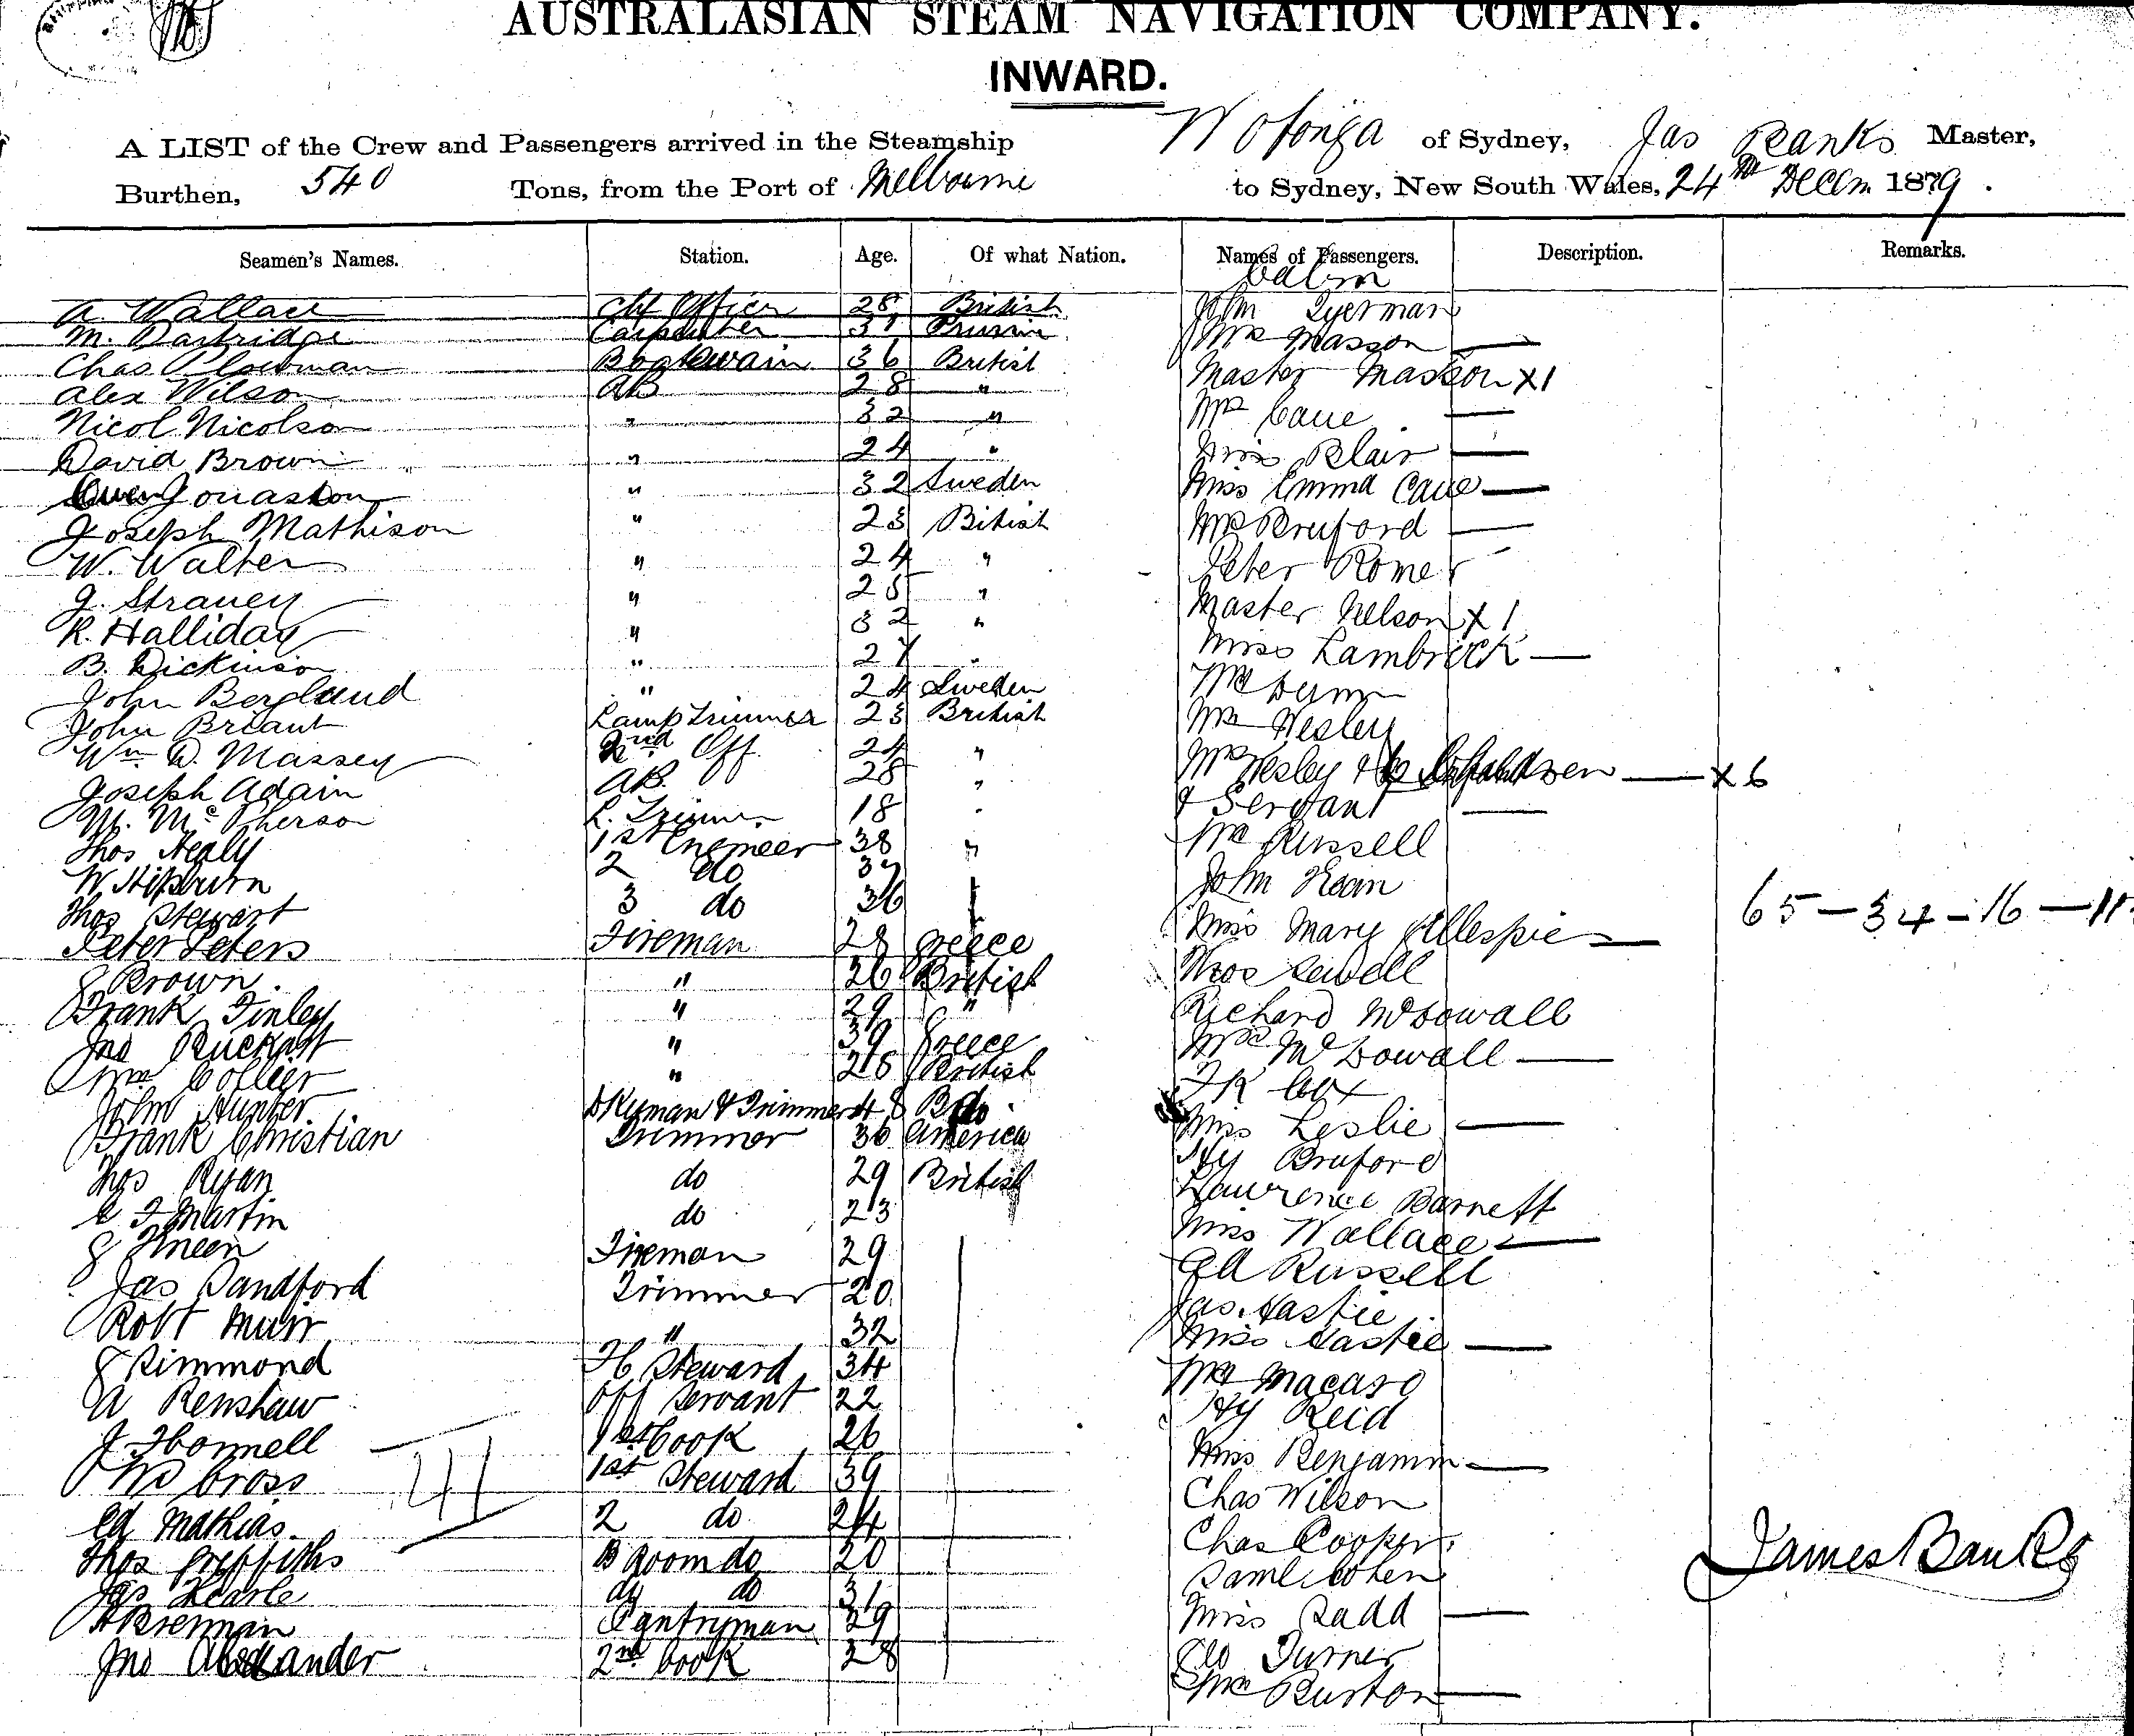 AUSTRALASIAN STEAM NAVIGATION COMPANY.
INWARD.
A LIST of the Crew and Passengers arrived in the Steamship Wotonga of Sydney, Jas Banks Master,
Burthen, 540 Tons, from the Port of Melbourne to Sydney, New South Wales, 24th Decem 1879.
Seamen's Names. Station. Age. Of what Nation. Names of Passengers. Description. Remarks.
Cabin
A. Wallace Chf Officer 28 British John Tyerman
M. Dartridge Carpenter 37 Prussia Mrs Masson —
Chas Plowman Boatswain 36 British Master Masson x1
Alex Wilson AB 28 " Mrs Cave —
Nicol Nicolson " 32 " Miss Blair —
David Brown " 24 " Miss Emma Cave —
Jonasson " 32 Sweden Mrs Bruford —
Joseph Mathison " 23 Bitish Peter Romer
W. Walter " 24 " Master Nelson x1
J. Straney " 25 " Miss Lambrick —
R. Halliday " 32 "
B. Dickinson " 27 "
John Berglund " 24 Sweden Mr Wesley
John Briant Lamp Trimmer 23 British Mrs Wesley & 6 Children — x6
Wm D. Massey 2nd Off 24 " & Servant —
Joseph Adain AB. 28 " Mr Russell
M. McPherson L. Trimmer 18 "
Thos Nealy 1st Engineer 38 " John Kean
W Hipburn 2 do 37
Thos Stewart 3 do 36 Miss Mary Gillespie — 65 — 34 — 16 — 11
Peter Peters Fireman 28 Greece Thos Sewell
J Brown. " 26 British Richard McDowall
Frank Finley " 29 " Mrs McDowall —
Jno " 39 Greece F K Cox
Wm Collier " 28 British Miss Leslie —
John Hunter Dkyman & Trimmer 48 B do
Frank Christian Trimmer 36 America Hy Bruford
Thos Ryan do 29 British Lawrence Barnett
C F Martin do 23 Miss Wallace —
J Kneen Fireman 29 Russell
Jas Sandford Trimmer 20 Jas. Hastie
Robt Muir " 32 Miss Hastie —
J Simmond F C Steward 34
A Renshaw Off Servant 22 Hy Reid
J Fbonnell 1st Cook 26 Miss Benjamin —
41
Cross 1st Steward 39 Chas Wilson
Ed Mathias. 2 do 24 Chas Cooper
Thos Griffiths B Room do 20 Saml Cohen James Banks
Jas Searle do do 31 Miss Radd —
A Brennan Pantryman 29 Geo Turner
Jno Alexander 2nd Cook 28 Mrs Burton —